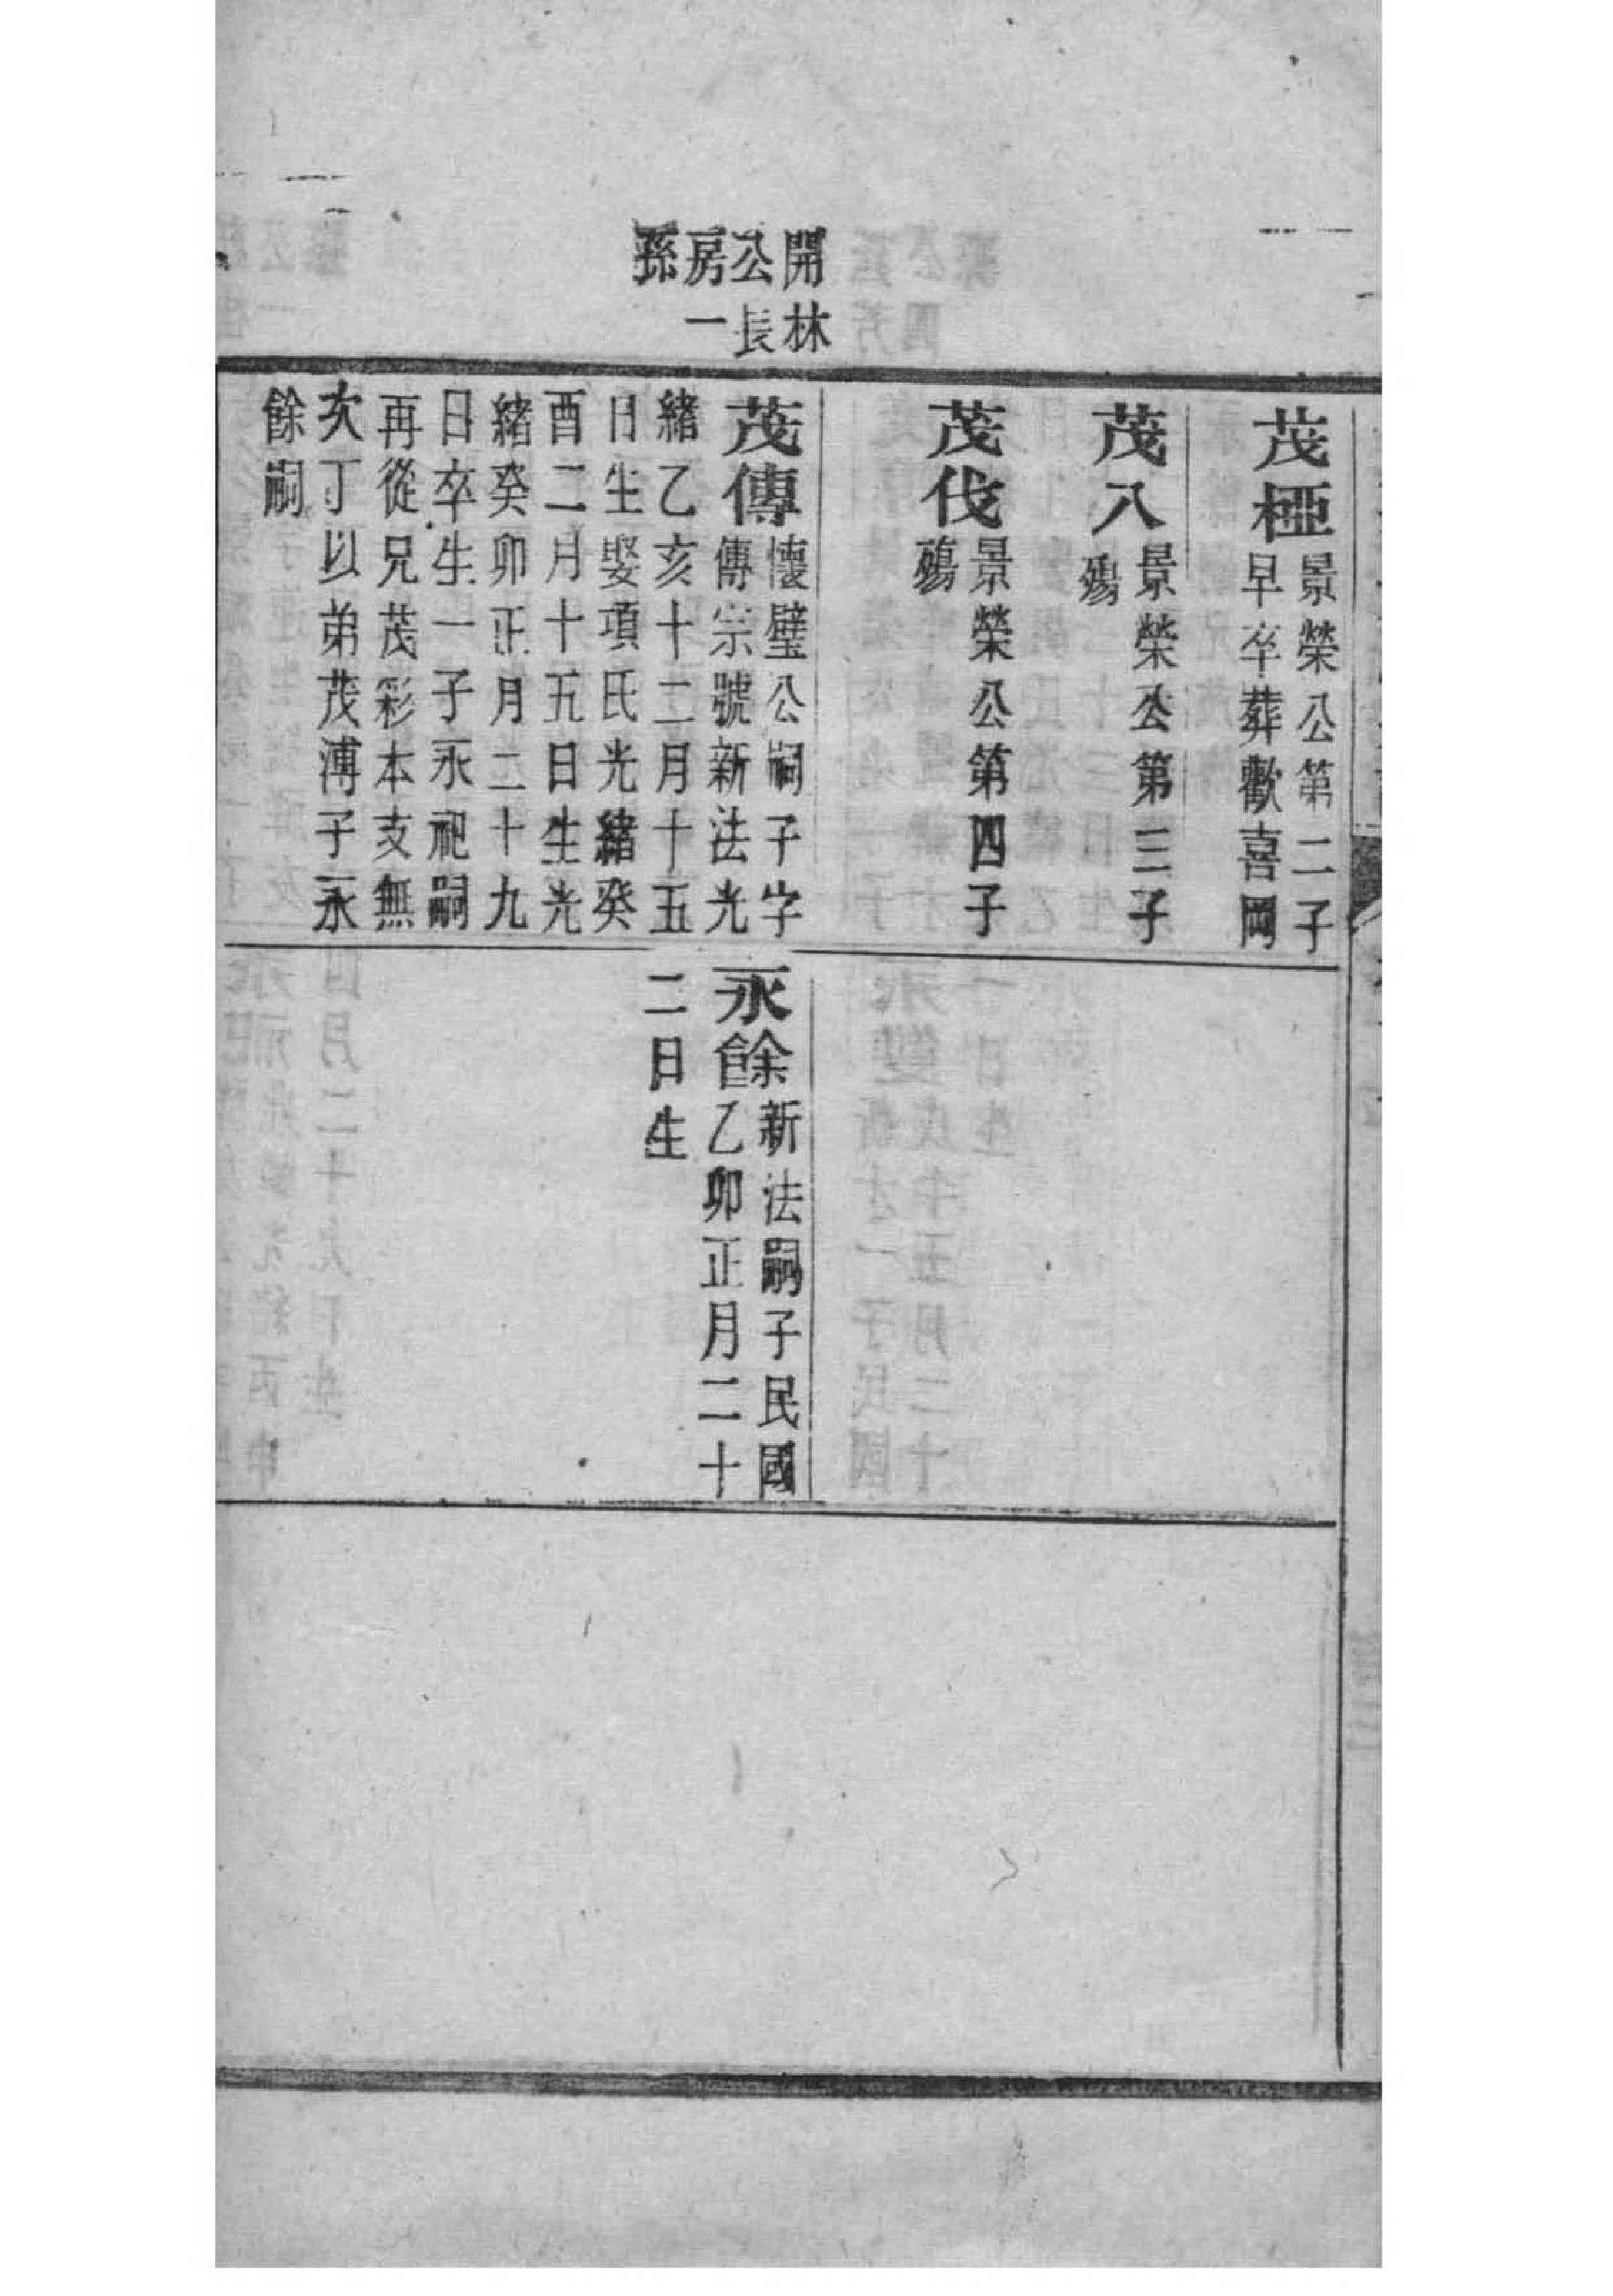 開林
公長
房一
孫
茂椏
景榮公第二子
早卒葬歡喜岡
茂八
景榮公第三子
殤
茂伐
景榮公第四子
殤
茂傳
懷璧公嗣子字
傳宗號新法光
緒乙亥十二月十五
日生娶項氏光緒癸
酉二月十五日生光
緒癸卯正月二十九
日卒生一子永祀嗣
再從兄茂彩本支無
次丁以弟茂溥子永
餘嗣
永餘
新法嗣子民國
乙卯正月二十
二日生